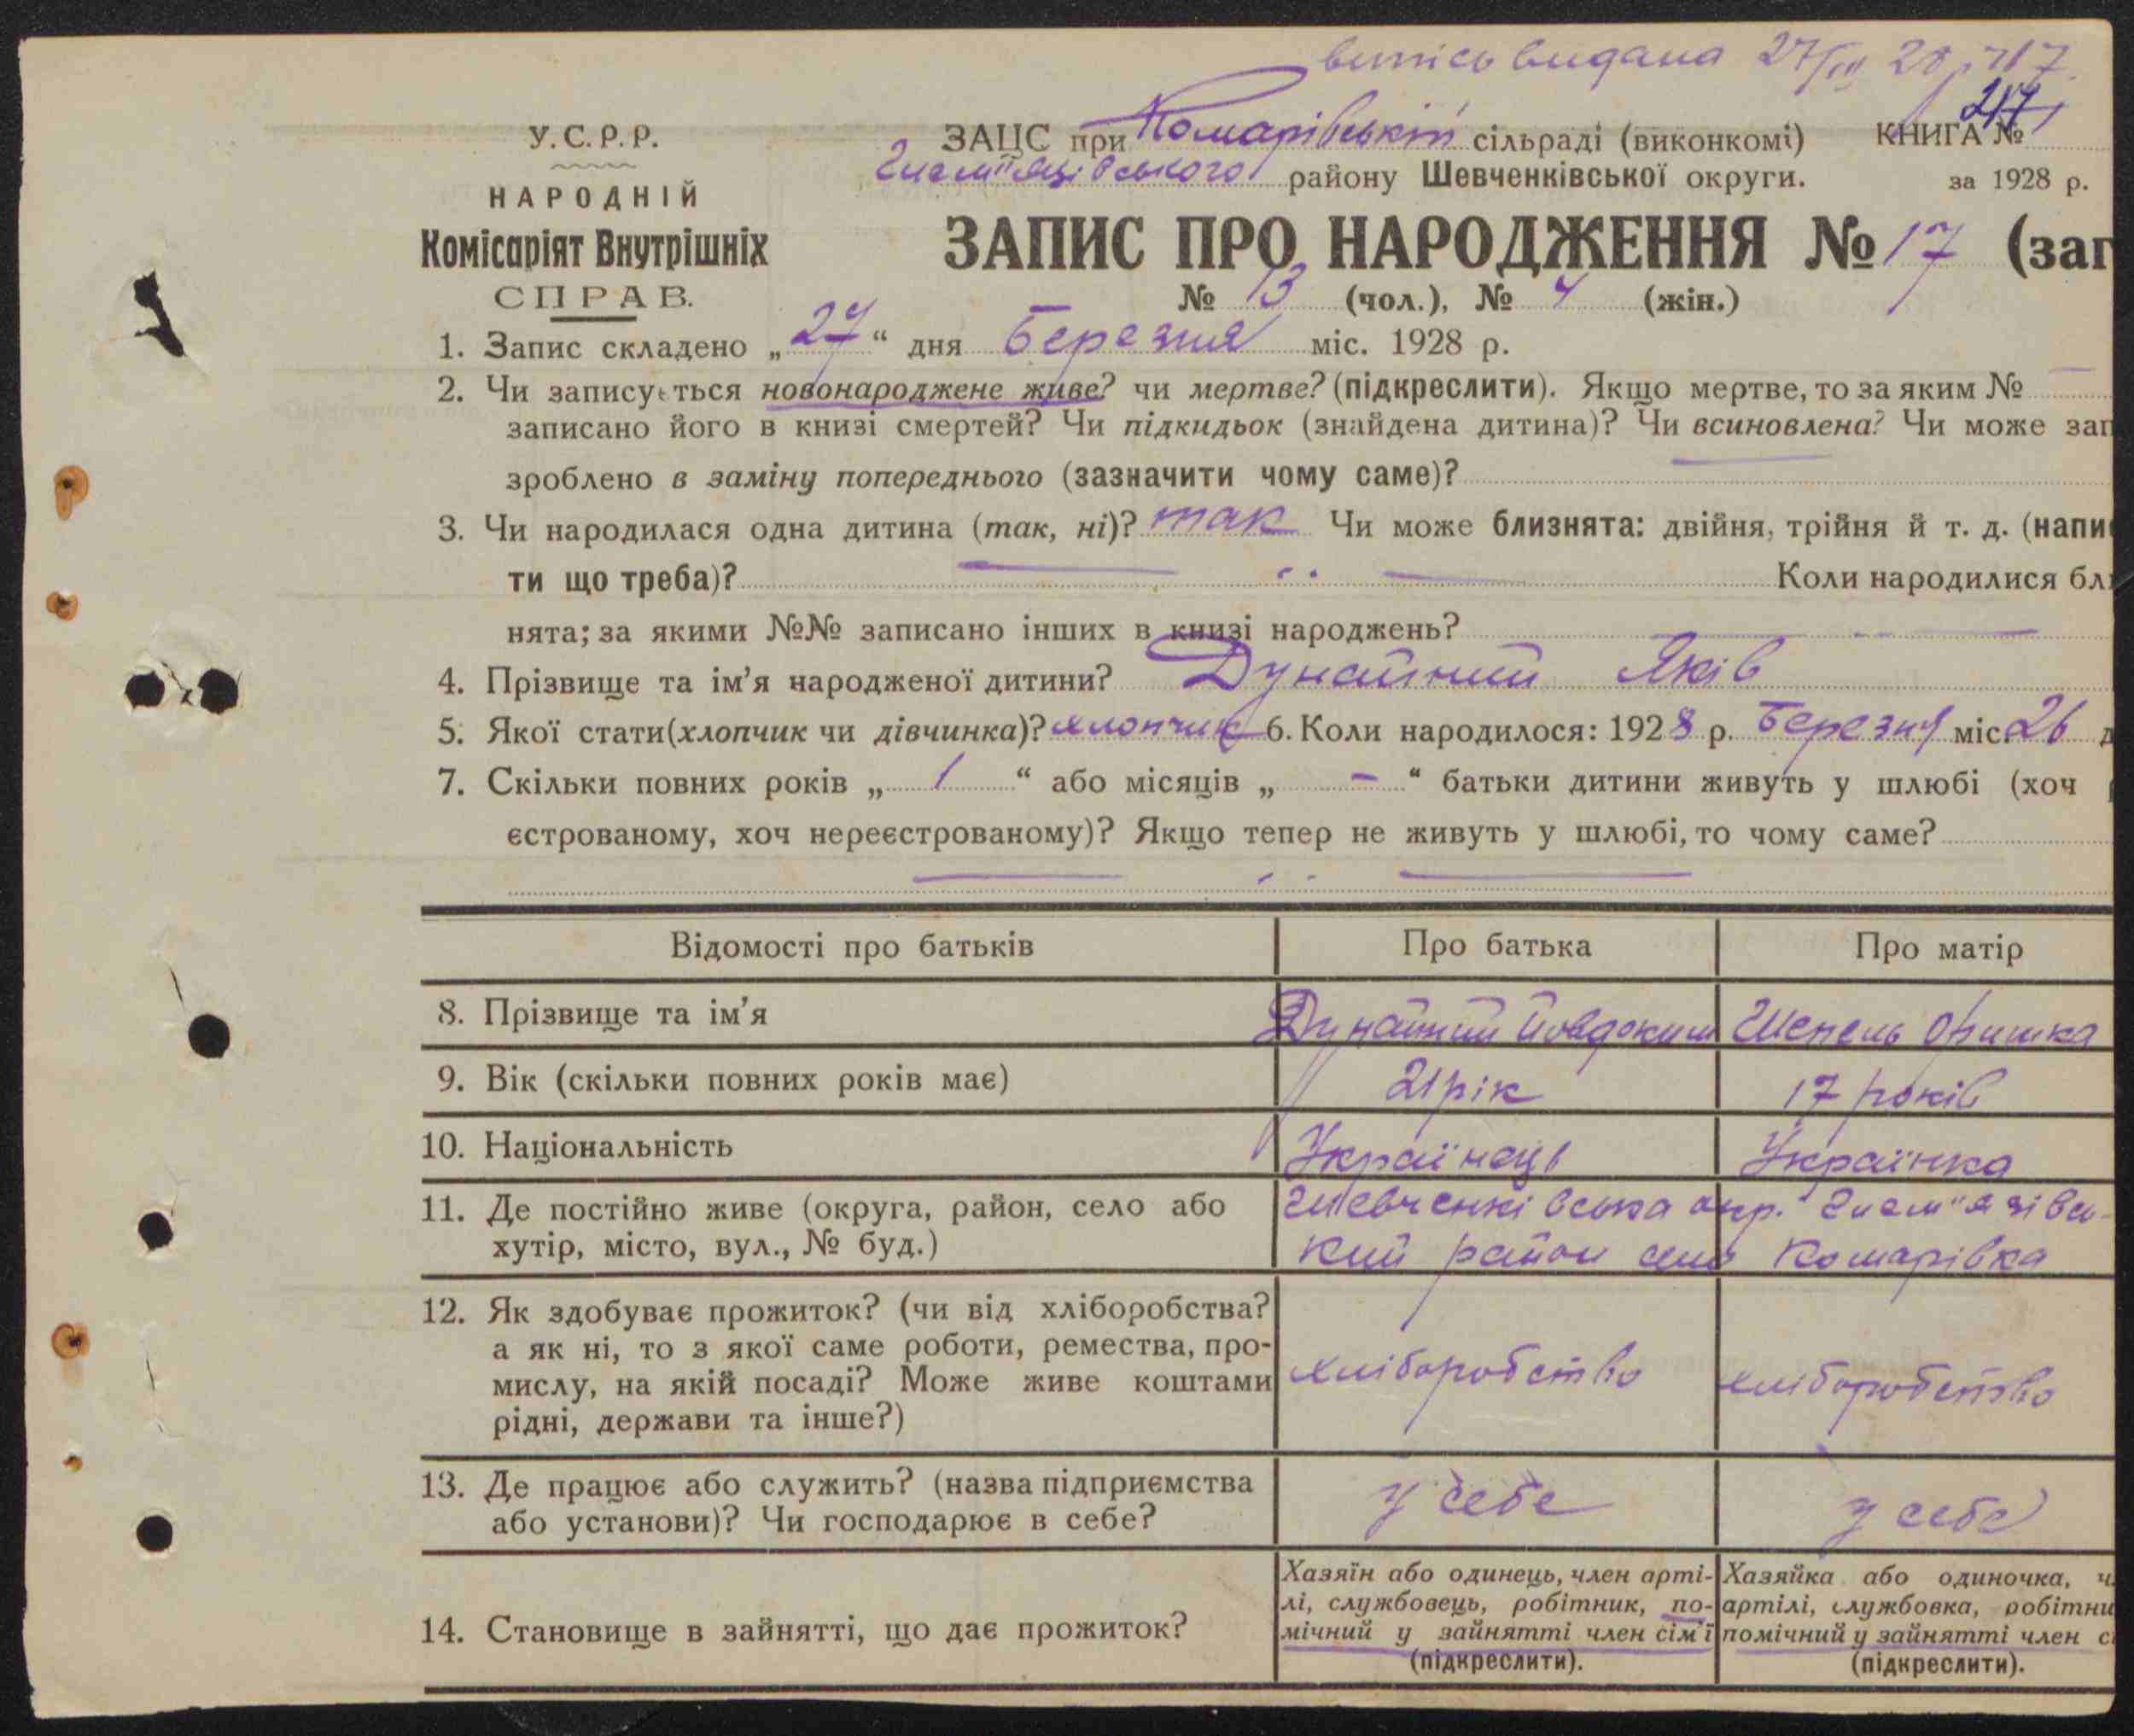 випись видана 27/III 28 р. №17.
У.С.Р.Р.
ЗАЦС при Комарівській сільраді (виконкомі) КНИГА №
Гнем"язівського району Шевченківської округи. за 1928 р.
НАРОДНІЙ
Комісаріят Внутрішніх
СПРАВ.
ЗАПИС ПРО НАРОДЖЕННЯ № 17 (заг
№ 13 (чол.), № 4 (жін.)
1. Запис складено „27“ дня Березня міс. 1928 р.
2. Чи записується новонароджене живе? чи мертве? (підкреслити). Якщо мертве, то за яким № —
записано його в книзі смертей? Чи підкидьок (знайдена дитина)? Чи всиновлена? Чи може зап
зроблено в заміну попереднього (зазначити чому саме)?
3. Чи народилася одна дитина (так, ні)? так Чи може близнята: двійня, трійня й т. д. (напис
ти що треба)? Коли народилися бли
нята; за якими №№ записано інших в книзі народжень?
4. Прізвище та ім’я народженої дитини? Дунайний Яків
5. Якої стати (хлопчик чи дівчинка)? хлопчик 6. Коли народилося: 1928 р. Березня міс. 26 д
7. Скільки повних років „ 1 “ або місяців „ – “ батьки дитини живуть у шлюбі (хоч р
єстрованому, хоч нереєстрованому)? Якщо тепер не живуть у шлюбі, то чому саме?
Відомості про батьків Про батька Про матір
8. Прізвище та ім’я Дунайний Йовдоким Шепель Оришка
9. Вік (скільки повних років має) 21 рік 17 років
10. Національність Українець Українка
11. Де постійно живе (округа, район, село або Шевченківська окр. Гнем"язівсь-
хутір, місто, вул., № буд.) кий район село Комарівка
12. Як здобуває прожиток? (чи від хліборобства?
а як ні, то з якої саме роботи, ремества, про-
мислу, на якій посаді? Може живе коштами хліборобство хліборобство
рідні, держави та інше?)
13. Де працює або служить? (назва підприємства у себе у себе
або установи)? Чи господарює в себе?
Хазяїн або одинець, член арті- Хазяйка або одиночка, ч
лі, службовець, робітник, по- артілі, службовка, робітни
14. Становище в зайнятті, що дає прожиток? мічний у зайнятті член сім’ї помічний у зайнятті член с
(підкреслити). (підкреслити).